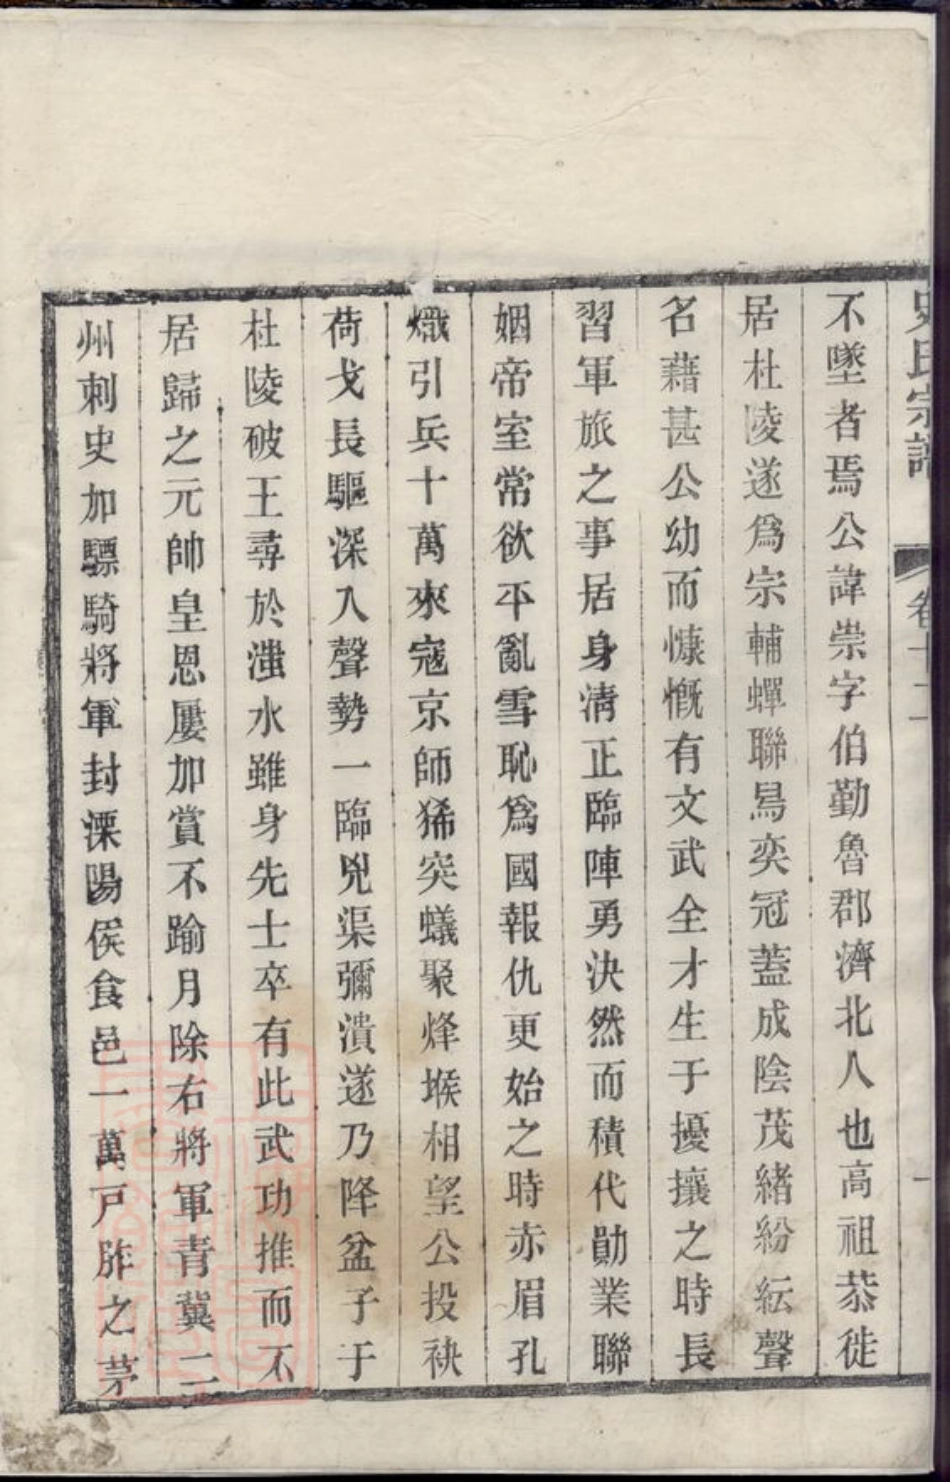 史氏宗譜 卷十二 一
不墜者焉公諱崇字伯勤魯郡濟北人也高祖恭徙
居杜陵遂爲宗輔蟬聯舄奕冠蓋成陰茂緒紛紜聲
名藉甚公幼而慷慨有文武全才生于擾攘之時長
習軍旅之事居身清正臨陣勇決然而積代勛業聯
姻帝室常欲平亂雪恥爲國報仇更始之時赤眉孔
熾引兵十萬來寇京師狶突蟻聚烽堠相望公投袂
荷戈長驅深入聲勢一臨兇渠彌潰遂乃降盆子于
杜陵破王尋於滍水雖身先士卒有此武功推而不
居歸之元帥皇恩屢加賞不踰月除右將軍青冀二
州刺史加驃騎將軍封溧陽侯食邑一萬戸胙之茅